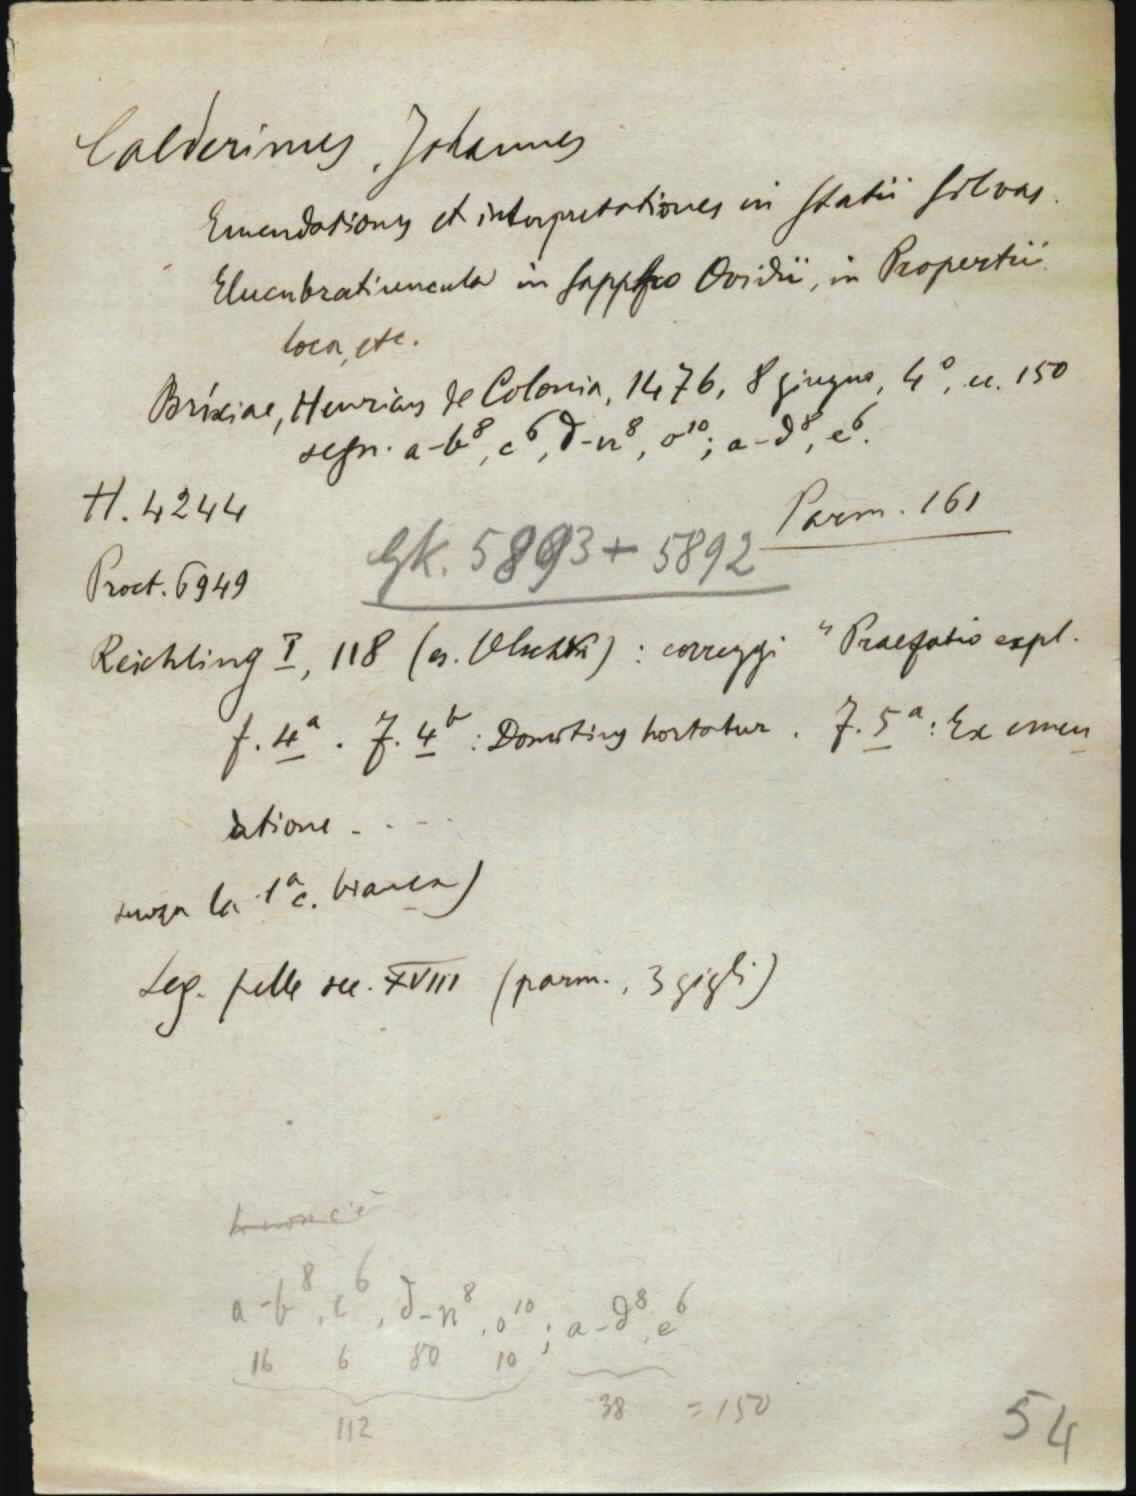 Calderinus, Johannes
Emendationes et interpretationes in Statii Silvas.
Elucubratiuncula in Sappho Ovidii, in Propertii
loca, etc.
Brixiae, Henricus de Colonia, 1476, 8 giugno, 4°, cc. 150
segn. a-b⁸, c⁶, d-n⁸, o¹⁰; a-d⁸, e⁶.
H. 4244
Parm. 161
Gk. 5893 + 5892
Proct. 6949
Reichling I, 118 (es. Olschki) : correggi "Praefatio expl.
f. 4ᵃ. F. 4ᵇ: Domitius hortatur. F. 5ᵃ: Ex emen
datione - - - -
senza la 1ᵃ c. bianca)
Leg. pelle sec. XVIII (parm., 3 gigli)
a-b⁸, c⁶, d-n⁸, o¹⁰; a-d⁸, e⁶
16 6 80 10
112 38 = 150
54